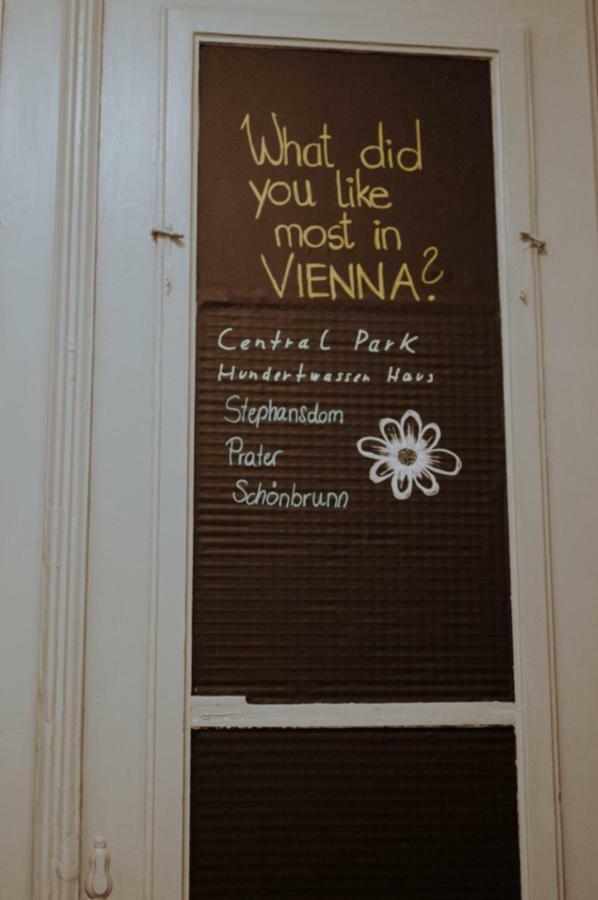 What did
you like
most in
VIENNA?
Central Park
Hundertwassen Haus
Stephansdom
Prater
Schönbrunn